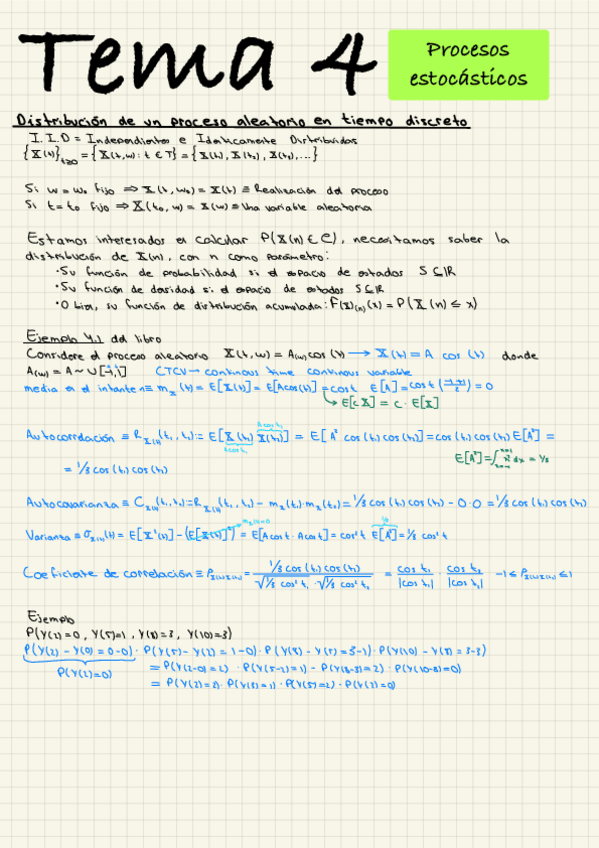 Tema 4
Procesos
estocásticos
Distribución de un proceso aleatorio en tiempo discreto
I.I.D = Independientes e Idénticamente Distribuidas
{X(t)}t≥0 = {X(t,w): t ∈ T} = {X(t₁), X(t₂), X(t₃),...}
Si w = w₀ fijo ⇒ X(t,w₀) = X(t) ≡ Realización del proceso
Si t = t₀ fijo ⇒ X(t₀,w) = X(w) ≡ Una variable aleatoria
Estamos interesados en calcular P(X(n) ∈ C), necesitamos saber la
distribución de X(n), con n como parámetro:
· Su función de probabilidad si el espacio de estados S ⊆ ℝ
· Su función de densidad si el espacio de estados S ⊆ ℝ
· O bien, su función de distribución acumulada: F(X)(n)(x) = P(X(n) ≤ x)
Ejemplo 4.1 del libro
Considere el proceso aleatorio X(t,w) = A(w) cos(t) → X(t) = A cos(t) donde
A(w) = A ~ U[-1,1] CTCV → continous time continous variable
media en el instante n ≡ mx(t) = E[X(t)] = E[Acos(t)] = cost E[A] = cost (-1+1/2) = 0
E[cX] = c · E[X]
Acost₂
Autocorrelación ≡ RX(t)(t₁,t₂) = E[X(t₁) X(t₂)] = E[A² cos(t₁) cos(t₂)] = cos(t₁) cos(t₂) E[A²] =
Acost₁
= 1/3 cos(t₁) cos(t₂)
E[A²] = ∫ x²/2 dx = 1/3
Autocovarianza ≡ CX(t)(t₁,t₂) = RX(t)(t₁,t₂) - mx(t₁)·mx(t₂) = 1/3 cos(t₁) cos(t₂) - 0·0 = 1/3 cos(t₁) cos(t₂)
mx(t)=0
1/3
Varianza ≡ σX(t)(t) = E[X²(t)] - (E[X(t)])² = E[Acost · Acost] = cos²t E[A²] = 1/3 cos²t
Coeficiate de correlación ≡ ρX(t₁)X(t₂) = 1/3 cos(t₁) cos(t₂) / √1/3 cos²t₁ · √1/3 cos²t₂ = cos t₁/|cos t₁| · cos t₂/|cos t₂| -1 ≤ ρX(t₁)X(t₂) ≤ 1
Ejemplo
P(Y(2)=0, Y(5)=1, Y(8)=3, Y(10)=3)
P(Y(2) - Y(0) = 0-0) · P(Y(5) - Y(2) = 1-0) · P(Y(8) - Y(5) = 3-1) · P(Y(10) - Y(8) = 3-3)
P(Y(2)=0)
= P(Y(2-0)=2) · P(Y(5-2)=1) - P(Y(8-5)=2) · P(Y(10-8)=0)
= P(Y(2)=2) · P(Y(3)=1) · P(Y(5)=2) · P(Y(2)=0)